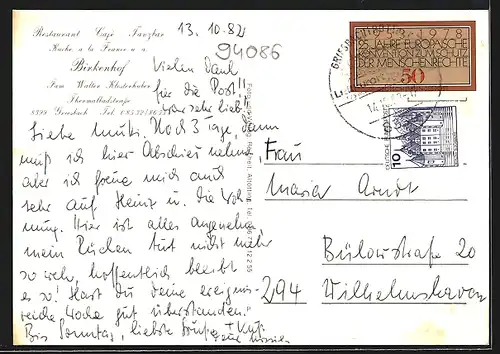 Restaurant Café Tanzbar
Küche a la France u. a.
Birkenhof
Fam. Walter Klosterhuber
Thermalbadstraße
8399 Griesbach Tel. 08532/
13.10.82
94086
Vielen Dank
für die Post!!
War sehr lieb!
Liebe Mutti. Noch 3 Tage, dann
muß ich hier Abschied nehmen,
aber ich freue mich auch
sehr auf Heinz u. die Woh-
nung. Hier ist alles angenehm,
mein Rücken tut nicht mehr
so weh, hoffentlich bleibt
es so! Hast du deine ereignis-
reiche Woche gut überstanden?
Bis Sonntag, liebste Grüße + Kuß
1978
25 JAHRE EUROPÄISCHE
KONVENTION ZUM SCHUTZ
DER MENSCHENRECHTE
50
10
Frau
Maria Arndt
Bülowstraße 20
294 Wilhelmshaven